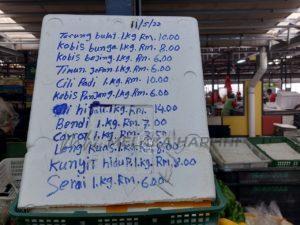 11/5/22
Terung bulat 1.kg Rm. 10.00
Kobis bunga 1.kg Rm. 8.00
Kobis bojing 1.kg Rm. 6.00
Timun japan 1.kg Rm. 6.00
Cili Padi 1.kg Rm. 10.00
Kobis Panjang 1.kg Rm. 6.00
hijau 1.kg Rm. 14.00
Bendi 1.kg Rm. 7.00
Carrot 1.kg Rm. 3.50
1.kg Rm.
Kunyit Hidup 1.kg Rm. 8.00
Serai 1.kg Rm. 6.00